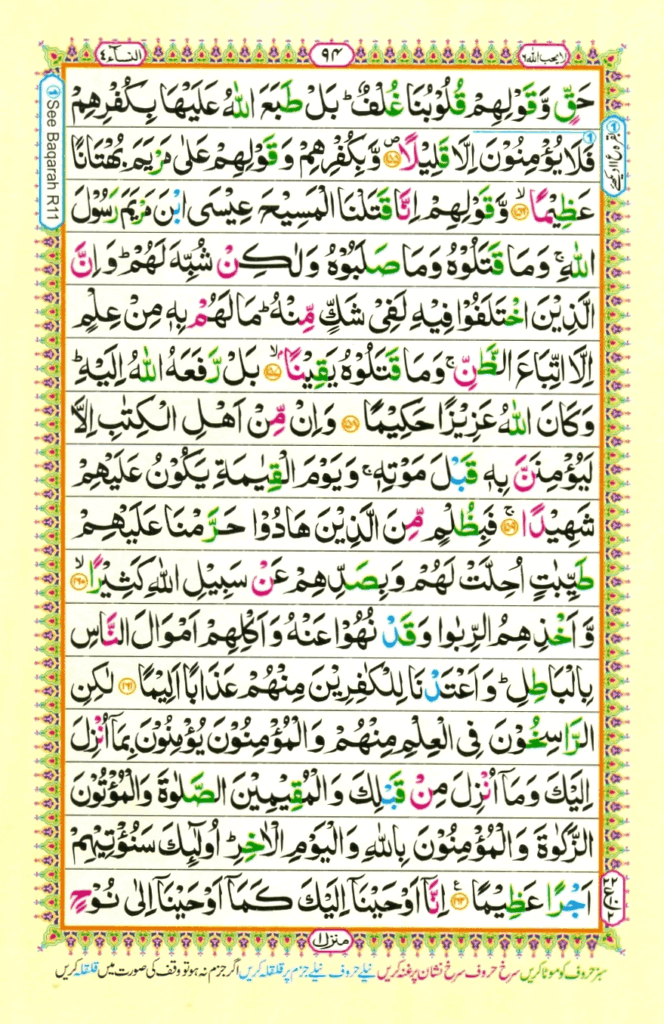 لا یحب الله ٦ ٩٤ النسآء ٤
See Baqarah R11
حَقٍّ وَّقَوْلِهِمْ قُلُوْبُنَا غُلْفٌ ؕ بَلْ طَبَعَ اللّٰهُ عَلَيْهَا بِكُفْرِهِمْ
فَلَا يُؤْمِنُوْنَ اِلَّا قَلِيْلًا ﴿١٥٥﴾ وَّبِكُفْرِهِمْ وَقَوْلِهِمْ عَلٰى مَرْيَمَ بُهْتَانًا
عَظِيْمًا ۙ﴿١٥٦﴾ وَّقَوْلِهِمْ اِنَّا قَتَلْنَا الْمَسِيْحَ عِيْسَى ابْنَ مَرْيَمَ رَسُوْلَ
اللّٰهِ ۚ وَمَا قَتَلُوْهُ وَمَا صَلَبُوْهُ وَلٰكِنْ شُبِّهَ لَهُمْ ؕ وَاِنَّ
الَّذِيْنَ اخْتَلَفُوْا فِيْهِ لَفِىْ شَكٍّ مِّنْهُ ؕ مَا لَهُمْ بِهٖ مِنْ عِلْمٍ
اِلَّا اتِّبَاعَ الظَّنِّ ۚ وَمَا قَتَلُوْهُ يَقِيْنًا ۙ﴿١٥٧﴾ بَلْ رَّفَعَهُ اللّٰهُ اِلَيْهِ ؕ
وَكَانَ اللّٰهُ عَزِيْزًا حَكِيْمًا ﴿١٥٨﴾ وَاِنْ مِّنْ اَهْلِ الْكِتٰبِ اِلَّا
لَيُؤْمِنَنَّ بِهٖ قَبْلَ مَوْتِهٖ ۚ وَيَوْمَ الْقِيٰمَةِ يَكُوْنُ عَلَيْهِمْ
شَهِيْدًا ۚ﴿١٥٩﴾ فَبِظُلْمٍ مِّنَ الَّذِيْنَ هَادُوْا حَرَّمْنَا عَلَيْهِمْ
طَيِّبٰتٍ اُحِلَّتْ لَهُمْ وَبِصَدِّهِمْ عَنْ سَبِيْلِ اللّٰهِ كَثِيْرًا ۙ﴿١٦٠﴾
وَّاَخْذِهِمُ الرِّبٰوا وَقَدْ نُهُوْا عَنْهُ وَاَكْلِهِمْ اَمْوَالَ النَّاسِ
بِالْبَاطِلِ ؕ وَاَعْتَدْنَا لِلْكٰفِرِيْنَ مِنْهُمْ عَذَابًا اَلِيْمًا ﴿١٦١﴾ لٰكِنِ
الرّٰسِخُوْنَ فِى الْعِلْمِ مِنْهُمْ وَالْمُؤْمِنُوْنَ يُؤْمِنُوْنَ بِمَاۤ اُنْزِلَ
اِلَيْكَ وَمَاۤ اُنْزِلَ مِنْ قَبْلِكَ وَالْمُقِيْمِيْنَ الصَّلٰوةَ وَالْمُؤْتُوْنَ
الزَّكٰوةَ وَالْمُؤْمِنُوْنَ بِاللّٰهِ وَالْيَوْمِ الْاٰخِرِ ؕ اُولٰٓئِكَ سَنُؤْتِيْهِمْ
اَجْرًا عَظِيْمًا ﴿١٦٢﴾ اِنَّاۤ اَوْحَيْنَاۤ اِلَيْكَ كَمَاۤ اَوْحَيْنَاۤ اِلٰى نُوْحٍ
منزل ١
سبز حروف کو موٹا کریں سرخ حروف سرخ نشان پر غنہ کریں نیلے حروف نیلے جزم پر قلقلہ کریں اگر جزم نہ ہو تو وقف کی صورت میں قلقلہ کریں